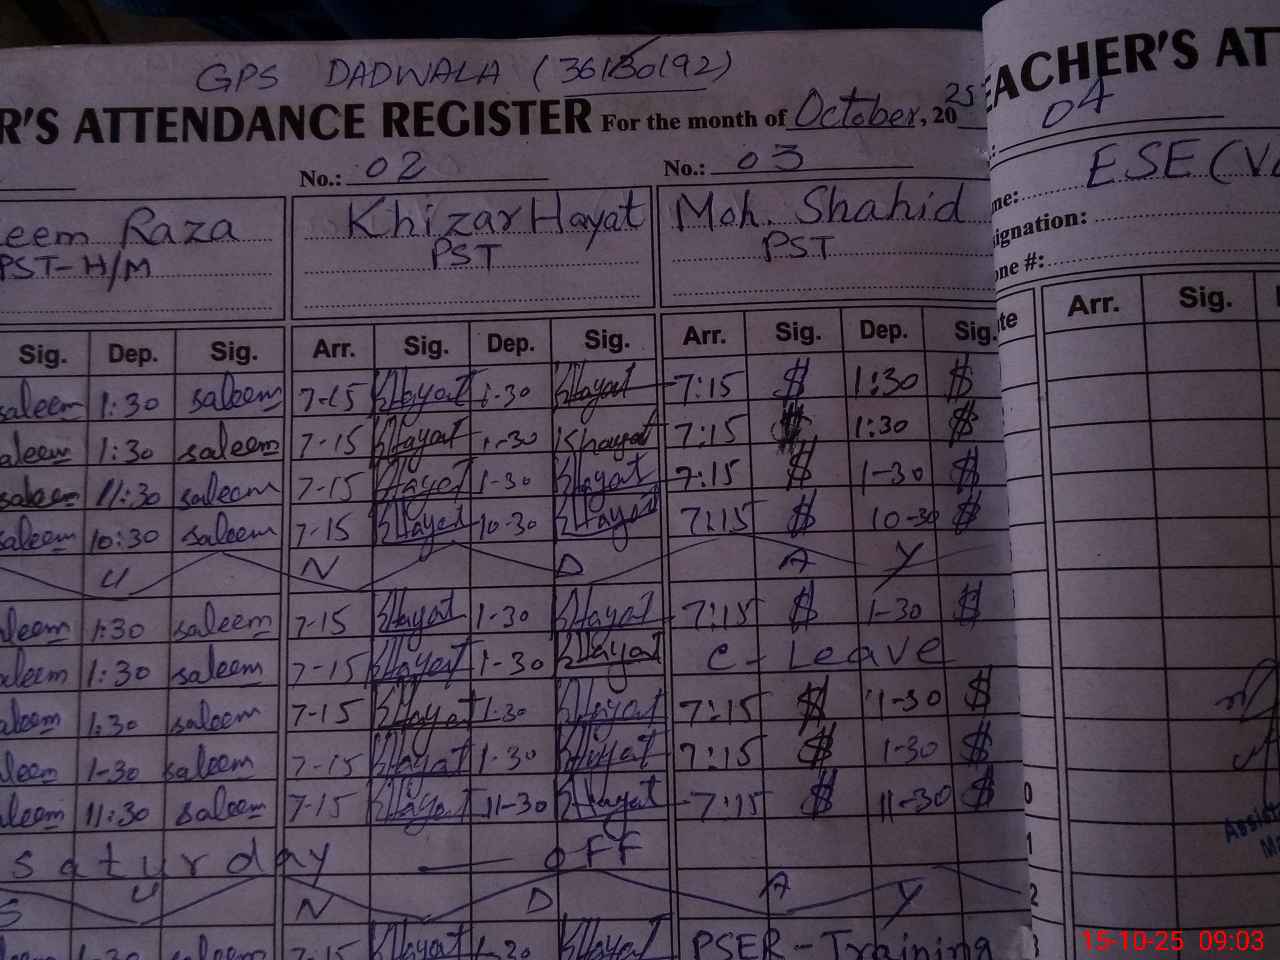 GPS DADWALA (36130192)
R'S ATTENDANCE REGISTER For the month of October, 2025
EACHER'S AT
No.: 02 No.: 03 04
eem Raza Khizar Hayat Moh. Shahid me: ESE (V
PST-H/M PST PST ignation:
one #:
Sig. Dep. Sig. Arr. Sig. Dep. Sig. Arr. Sig. Dep. Sig. te Arr. Sig.
saleem 1:30 saleem 7-15 Hayat 1-30 Hayat 7:15 $ 1:30 $
aleem 1:30 saleem 7-15 Hayat 1-30 Khayat 7:15 $ 1:30 $
saleem 11:30 saleem 7-15 Hayat 1-30 Hayat 7:15 $ 1-30 $
saleem 10:30 saleem 7-15 Hayat 10-30 Hayat 7:15 $ 10-30 $
U N D A Y
leem 1:30 saleem 7-15 Hayat 1-30 Hayat 7:15 $ 1-30 $
aleem 1:30 saleem 7-15 Hayat 1-30 Hayat C-Leave
aleem 1:30 saleem 7-15 Hayat 1-30 Hayat 7:15 $ 1-30 $
leem 1-30 saleem 7-15 Hayat 1-30 Hayat 7:15 $ 1-30 $
leem 11:30 saleem 7-15 Hayat 11-30 Hayat 7:15 $ 11-30 $ 0
saturday — off 1
S U N D A Y 2
saleem 7-15 Hayat Hayat PSER-Training 3
Assist
15-10-25 09:03